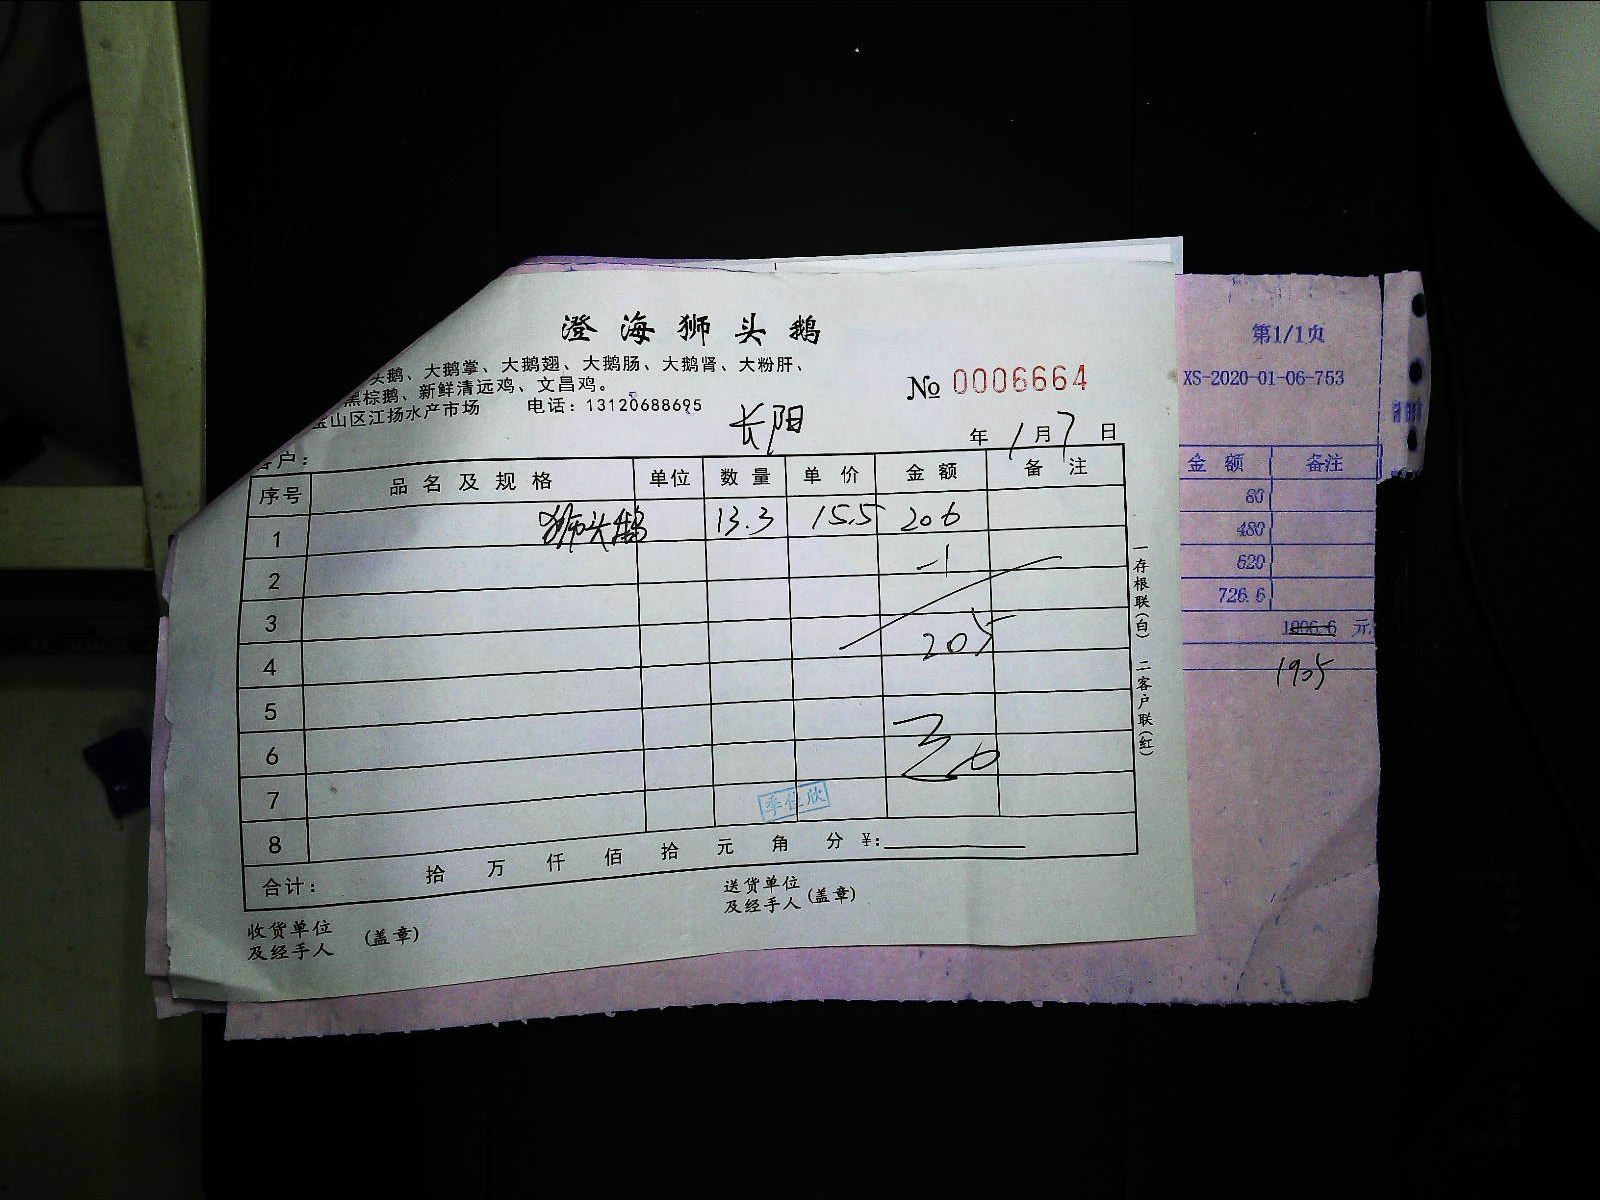 澄海狮头鹅
头鹅、大鹅掌、大鹅翅、大鹅肠、大鹅肾、大粉肝、
黑棕鹅、新鲜清远鸡、文昌鸡。
宝山区江扬水产市场 电话：13120688695
№ 0006664
长阳
客户：
年 1 月 7 日
序号 品名及规格 单位 数量 单价 金额 备注
1 狮头鹅 13.3 15.5 206
2 -1
3
4 205
5
6
7
8
合计： 拾 万 仟 佰 拾 元 角 分 ¥:
收货单位
及经手人 (盖章)
送货单位
及经手人 (盖章)
一存根联(白) 二客户联(红)
第1/1页
XS-2020-01-06-753
金额 备注
60
480
620
726.6
元
1905